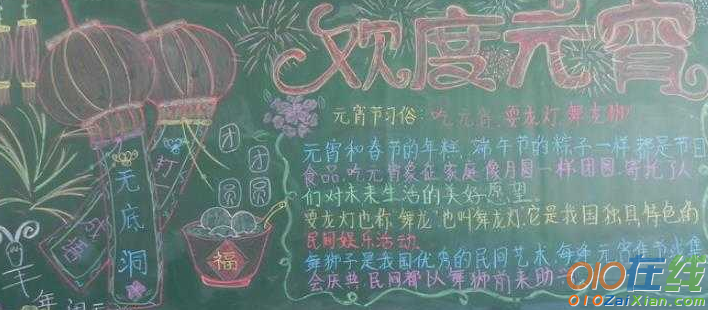 欢度元宵
元宵节习俗:吃元宵.耍龙灯.舞龙狮
元宵和春节的年糕,端午节的粽子一样,都是节日
食品.吃元宵象征家庭像月圆一样团圆,寄托了人
们对未来生活的美好愿望.
耍龙灯也称舞龙,也叫舞龙灯.它是我国独具特色的
民间娱乐活动.
舞狮子是我国优秀的民间艺术,每逢元宵佳节或集
会庆典,民间都以舞狮前来助
团团
圆圆
福
打一
成语
无底洞
千
年
010在线
010ZaiXian.com